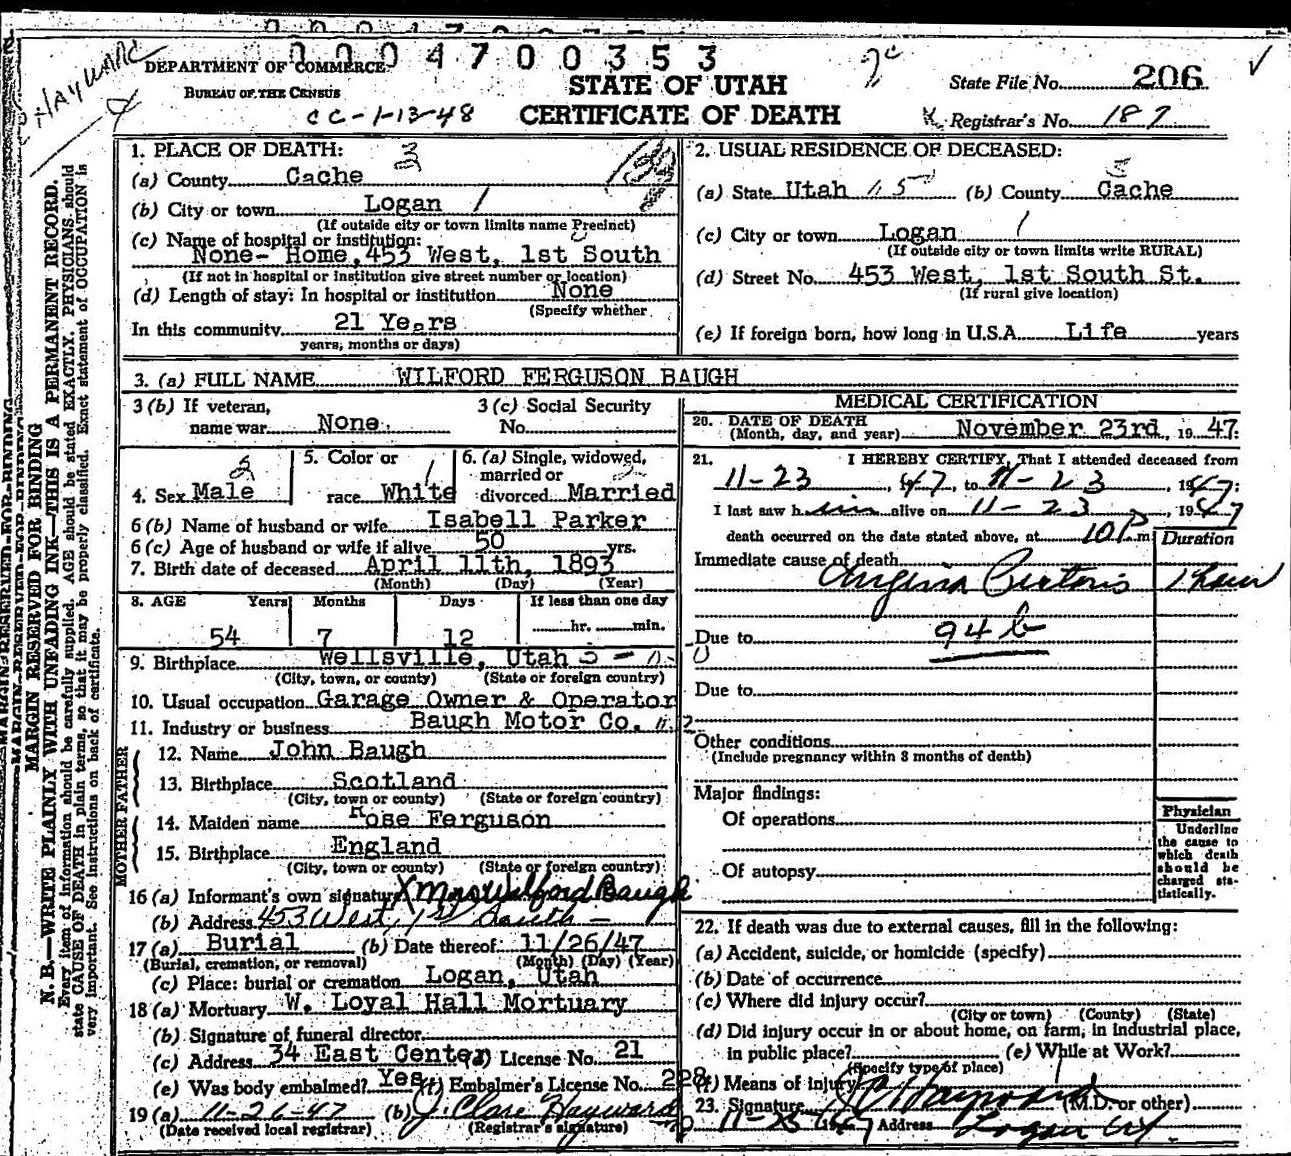 0004700353
HAYWARD
DEPARTMENT OF COMMERCE
BUREAU OF THE CENSUS
CC-1-13-48
STATE OF UTAH
CERTIFICATE OF DEATH
State File No. 206
Registrar's No. 187
MARGIN RESERVED FOR BINDING
N. B.—WRITE PLAINLY WITH UNFADING INK—THIS IS A PERMANENT RECORD.
Every item of information should be carefully supplied. AGE should be stated EXACTLY. PHYSICIANS should
state CAUSE OF DEATH in plain terms, so that it may be properly classified. Exact statement of OCCUPATION is
very important. See instructions on back of certificate.
1. PLACE OF DEATH:
(a) County Cache
(b) City or town Logan
(If outside city or town limits name Precinct)
(c) Name of hospital or institution:
None- Home, 453 West, 1st South
(If not in hospital or institution give street number or location)
(d) Length of stay: In hospital or institution None
(Specify whether
In this community 21 Years
years, months or days)
2. USUAL RESIDENCE OF DECEASED:
(a) State Utah 115 (b) County Cache
(c) City or town Logan
(If outside city or town limits write RURAL)
(d) Street No. 453 West, 1st South St.
(If rural give location)
(e) If foreign born, how long in U.S.A. Life years
3. (a) FULL NAME WILFORD FERGUSON BAUGH
3 (b) If veteran, name war None
3 (c) Social Security No.
4. Sex Male
5. Color or race White
6. (a) Single, widowed, married or divorced Married
6 (b) Name of husband or wife Isabell Parker
6 (c) Age of husband or wife if alive 50 yrs.
7. Birth date of deceased April 11th, 1893
(Month) (Day) (Year)
8. AGE Years Months Days If less than one day
54 7 12 hr. min.
9. Birthplace Wellsville, Utah
(City, town, or county) (State or foreign country)
10. Usual occupation Garage Owner & Operator
11. Industry or business Baugh Motor Co.
FATHER
12. Name John Baugh
13. Birthplace Scotland
(City, town or county) (State or foreign country)
MOTHER
14. Maiden name Rose Ferguson
15. Birthplace England
(City, town or county) (State or foreign country)
16 (a) Informant's own signature X Mrs Wilford Baugh
(b) Address 453 West, 1st South
17 (a) Burial (b) Date thereof 11/26/47
(Burial, cremation, or removal) (Month) (Day) (Year)
(c) Place: burial or cremation Logan, Utah
18 (a) Mortuary W. Loyal Hall Mortuary
(b) Signature of funeral director
(c) Address 34 East Center (d) License No. 21
(e) Was body embalmed? Yes (f) Embalmer's License No. 228
19 (a) 11-26-47 (b) J. Clare Hayward
(Date received local registrar) (Registrar's signature)
MEDICAL CERTIFICATION
20. DATE OF DEATH
(Month, day, and year) November 23rd, 1947:
21. I HEREBY CERTIFY, That I attended deceased from
11-23, 47, to 11-23, 1947:
I last saw him alive on 11-23, 1947
death occurred on the date stated above, at 10 P m
Duration
Immediate cause of death
Angina Pectoris 1 hour
Due to 94 b
Due to
Other conditions
(Include pregnancy within 3 months of death)
Major findings:
Of operations
Of autopsy
Physician
Underline
the cause to
which death
should be
charged sta-
tistically.
22. If death was due to external causes, fill in the following:
(a) Accident, suicide, or homicide (specify)
(b) Date of occurrence
(c) Where did injury occur?
(City or town) (County) (State)
(d) Did injury occur in or about home, on farm, in industrial place,
in public place? (e) While at Work?
(Specify type of place)
(f) Means of injury
23. Signature Hayward (M.D. or other)
11-25 1947 Address Logan